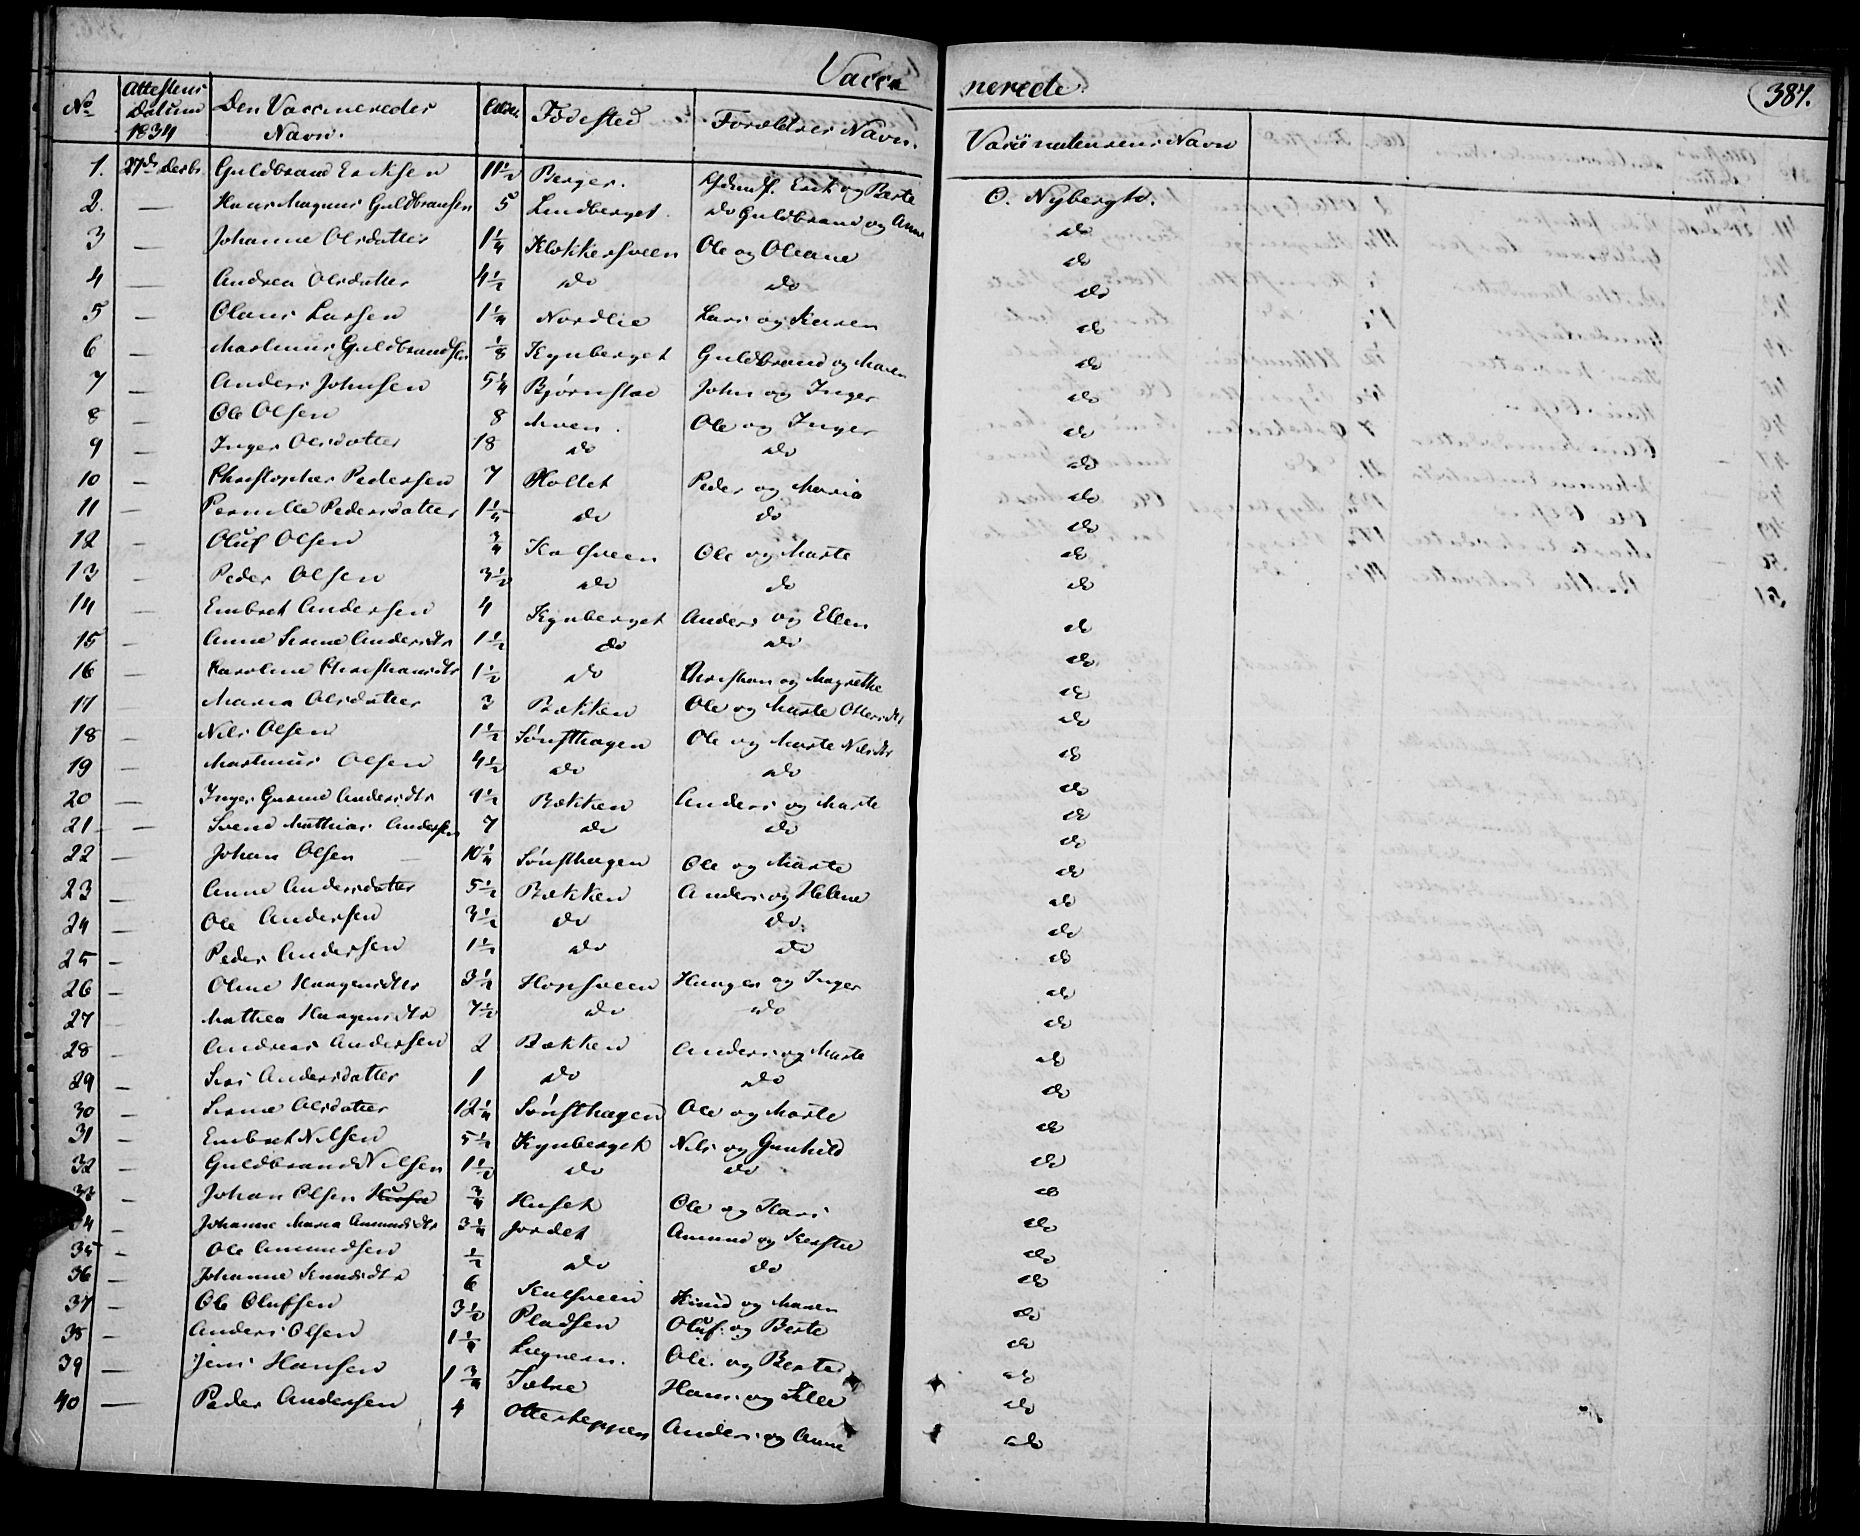 Vaccinerede 387.
No Attestens Datum 1834 Den Vaccineredes Navn. Alder. Fødested Forældres Navn. Vaccinateurens Navn
1. 27de Decbr Guldbrand Ericksen 11½ Berger. Gdmd. Erik og Berte O. Nybergto.
2. — Hans Magnus Guldbransen 5 Lindberget. do Guldbrand og Anne do
3 — Johanne Olsdatter 1¼ Klokkersveen Ole og Oleane do
4 — Andrea Olsdatter 4½ do do do
5 — Olaus Larsen 1¼ Nordlie Lars og Karen do
6 — Martinus Guldbrandsen ⅛ Kynberget Guldbrand og Maren do
7 — Anders Johnsen 5¼ Bjørnstad John og Inger do
8 — Ole Olsen 8 Moen. Ole og Inger do
9 — Inger Olsdatter 18 do do do
10 — Christopher Pedersen 7 Kollet Peder og Maria do
11 — Pernille Pedersdatter 1¼ do do do
12 — Oluf Olsen ¾ Kalsveen Ole og Marte do
13 — Peder Olsen 3½ do do do
14 — Embret Andersen 4 Kynberget Anders og Ellen do
15 — Anne Serine Andersdtr 1½ do do do
16 — Karoline Christiansdtr 1½ do Christian og Magrethe do
17 — Maria Olsdatter 3 Bækken Ole og Marte Olsdtr do
18 — Nils Olsen 1½ Sønsthagen Ole og Marte Nilsdtr do
19 — Martinus Olsen 4½ do do do
20 — Inger Gurine Andersdtr 9½ Bækken Anders og Marte do
21 — Svend Mathias Andersen 7 do do do
22 — Johan Olsen 10¼ Sønsthagen Ole og Marte do
23 — Anne Andersdatter 5½ Bækken Anders og Helene do
24 — Ole Andersen 3½ do do do
25 — Peder Andersen 1½ do do do
26 — Oline Haagensdtr 3½ Hornsveen Haagen og Inger do
27 — Mathea Haagensdtr 7½ do do do
28 — Andreas Andersen 2 Bækken Anders og Marte do
29 — Siri Andersdatter 1 do do do
30 — Serine Olsdatter 12¼ Sønsthagen Ole og Marte do
31 — Embret Nilsen 5½ Kynberget Nils og Gunhild do
32 — Guldbrand Nilsen 1½ do do do
33 — Johan Olsen ¾ Huset Ole og Kari do
34 — Johanne Maria Amundsdtr 3¼ Jordet Amund og Kerstie do
35 — Ole Amundsen ½ do do do
36 — Johanne Knudsdtr 6 Kalsveen Knud og Maren do
37 — Ole Olufsen 3½ Pladsen Oluf og Berte do
38 — Anders Olsen 1¼ Ole og Berte do
39 — Jens Hansen 1¾ Hans og do
40 — Peder Andersen 4 Anders og Anne do